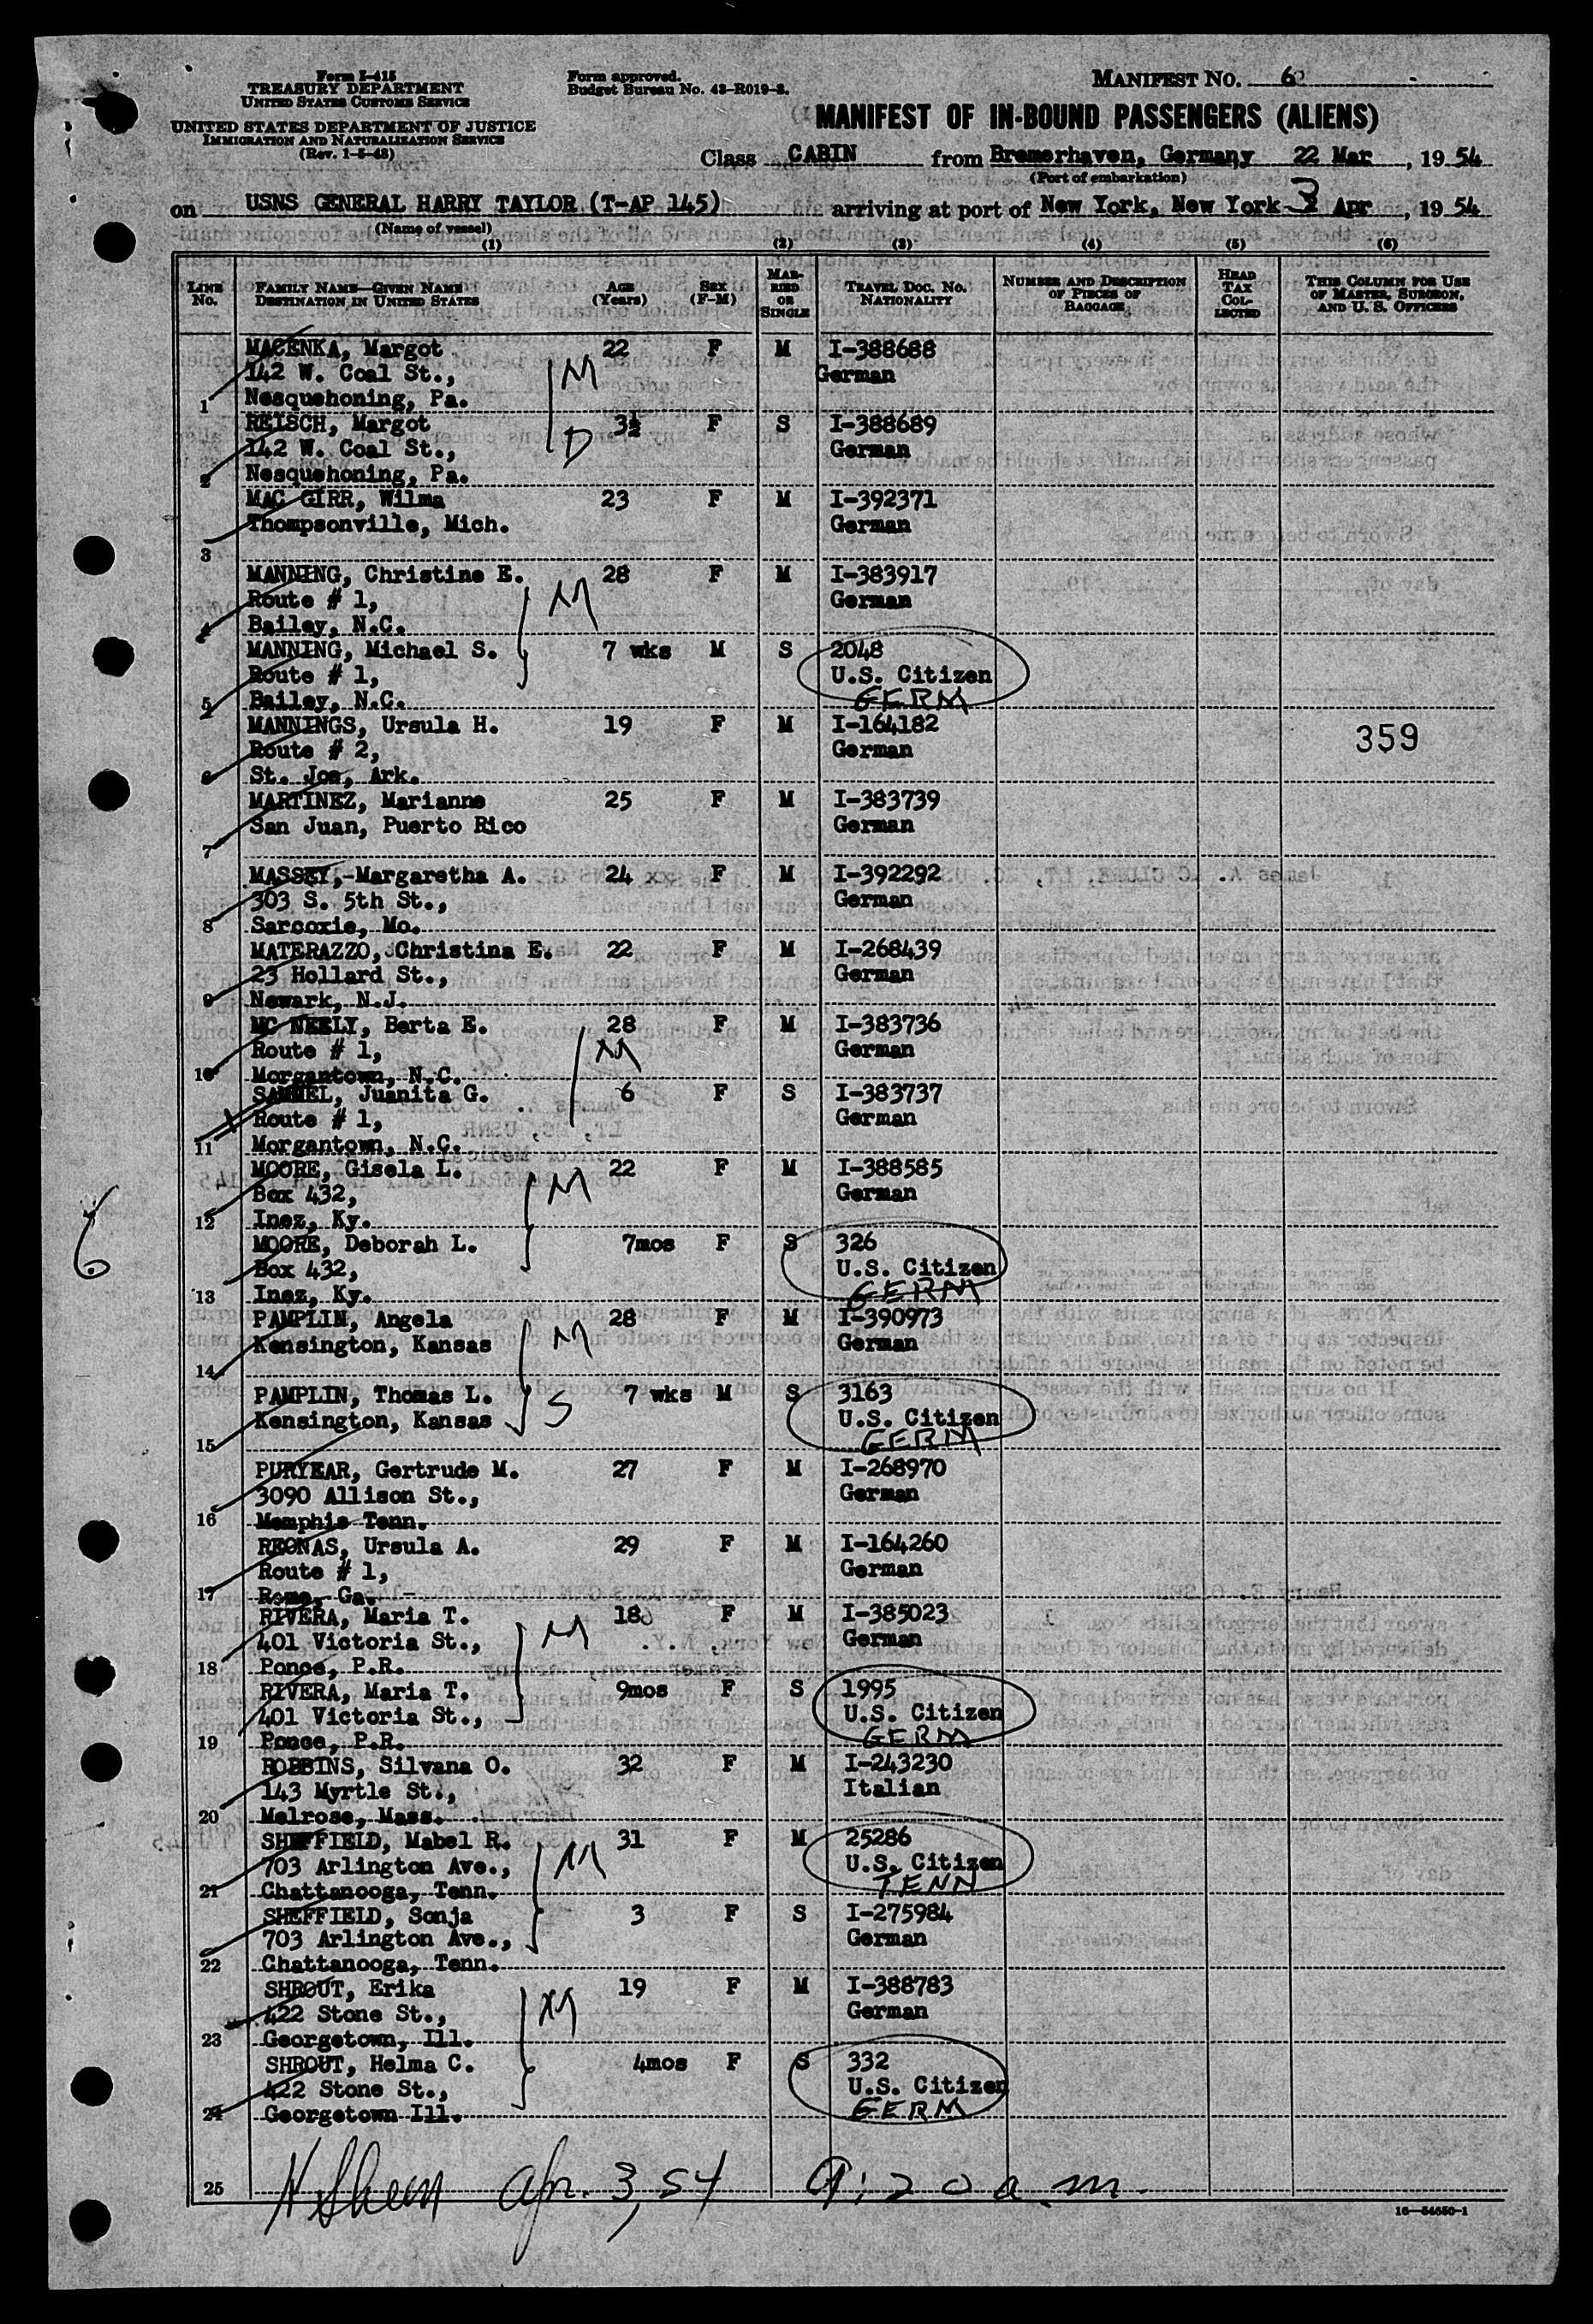 Form I-415
TREASURY DEPARTMENT
UNITED STATES CUSTOMS SERVICE
UNITED STATES DEPARTMENT OF JUSTICE
IMMIGRATION AND NATURALIZATION SERVICE
(Rev. 1-5-48)
Form approved.
Budget Bureau No. 43-R019-3.
MANIFEST NO. 6
MANIFEST OF IN-BOUND PASSENGERS (ALIENS)
Class CABIN from Bremerhaven, Germany 22 Mar, 1954
(Port of embarkation)
on USNS GENERAL HARRY TAYLOR (T-AP 145) arriving at port of New York, New York 3 Apr, 1954
(Name of vessel)
(1) (2) (3) (4) (5) (6)
LINE No. FAMILY NAME—GIVEN NAME DESTINATION IN UNITED STATES AGE (Years) SEX (F-M) MARRIED OR SINGLE TRAVEL DOC. NO. NATIONALITY NUMBER AND DESCRIPTION OF PIECES OF BAGGAGE HEAD TAX COLLECTED THIS COLUMN FOR USE OF MASTER, SURGEON, AND U. S. OFFICERS
MACENKA, Margot 22 F M I-388688
142 W. Coal St., M German
1 Nesquehoning, Pa.
REISCH, Margot 3½ F S I-388689
142 W. Coal St., D German
2 Nesquehoning, Pa.
MAC GIRR, Wilma 23 F M I-392371
Thompsonville, Mich. German
3
MANNING, Christine E. 28 F M I-383917
Route # 1, M German
4 Bailey, N.C.
MANNING, Michael S. 7 wks M S 2048
Route # 1, U.S. Citizen
5 Bailey, N.C. GERM
MANNINGS, Ursula H. 19 F M I-164182
Route # 2, German 359
6 St. Joe, Ark.
MARTINEZ, Marianne 25 F M I-383739
San Juan, Puerto Rico German
7
MASSEY, Margaretha A. 24 F M I-392292
303 S. 5th St., German
8 Sarcoxie, Mo.
MATERAZZO, Christina E. 22 F M I-268439
23 Hollard St., German
9 Newark, N.J.
MC NEELY, Berta E. 28 F M I-383736
Route # 1, M German
10 Morgantown, N.C.
SAMMEL, Juanita G. 6 F S I-383737
Route # 1, German
11 Morgantown, N.C.
MOORE, Gisela L. 22 F M I-388585
Box 432, M German
12 Inez, Ky.
6
MOORE, Deborah L. 7mos F S 326
Box 432, U.S. Citizen
13 Inez, Ky. GERM
PAMPLIN, Angela 28 F M I-390973
Kensington, Kansas M German
14
PAMPLIN, Thomas L. 7 wks M S 3163
Kensington, Kansas S U.S. Citizen
15 GERM
PURYEAR, Gertrude M. 27 F M I-268970
3090 Allison St., German
16 Memphis Tenn.
REONAS, Ursula A. 29 F M I-164260
Route # 1, German
17 Rome, Ga.
RIVERA, Maria T. 18 F M I-385023
401 Victoria St., M German
18 Ponce, P.R.
RIVERA, Maria T. 9mos F S 1995
401 Victoria St., U.S. Citizen
19 Ponce, P.R. GERM
ROBBINS, Silvana O. 32 F M I-243230
143 Myrtle St., Italian
20 Melrose, Mass.
SHEFFIELD, Mabel R. 31 F M 25286
703 Arlington Ave., M U.S. Citizen
21 Chattanooga, Tenn. TENN
SHEFFIELD, Sonja 3 F S I-275984
703 Arlington Ave., German
22 Chattanooga, Tenn.
SHROUT, Erika 19 F M I-388783
422 Stone St., M German
23 Georgetown, Ill.
SHROUT, Helma C. 4mos F S 332
422 Stone St., U.S. Citizen
24 Georgetown Ill. GERM
25 Apr. 3, 54 9:20 a.m.
16—54650-1